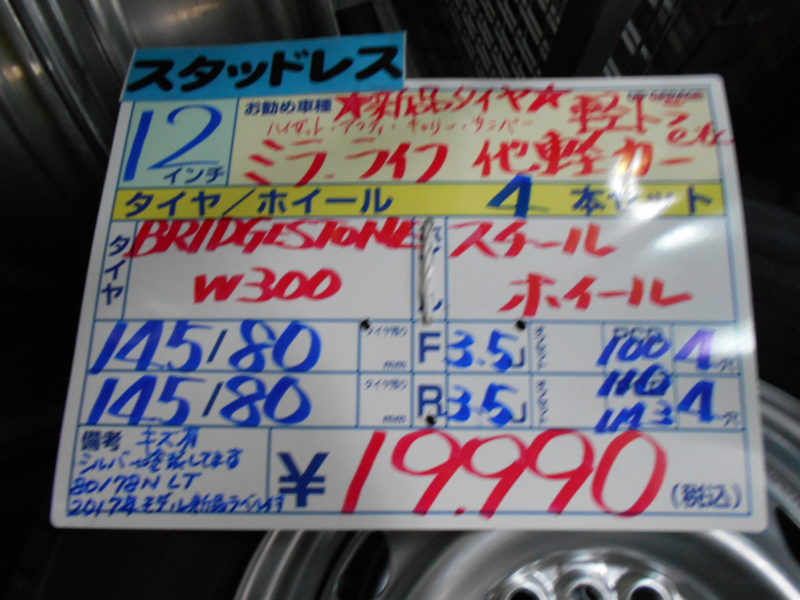 スタッドレス
12インチ
お勧め車種 ★新品タイヤ★ 軽トラ
ハイゼット・アクティ・キャリー・サンバー
ミラ ライフ 他軽カー
タイヤ/ホイール 4 本セット
タイヤ BRIDGESTONE スチール
W300 ホイール
145/80 mm F 3.5J 100 4穴
145/80 mm R 3.5J 110 4穴
114.3
備考 キズ有
シルバー塗装してある
80/78N LT
2017年モデル新品ラベル付
¥19.990 (税込)